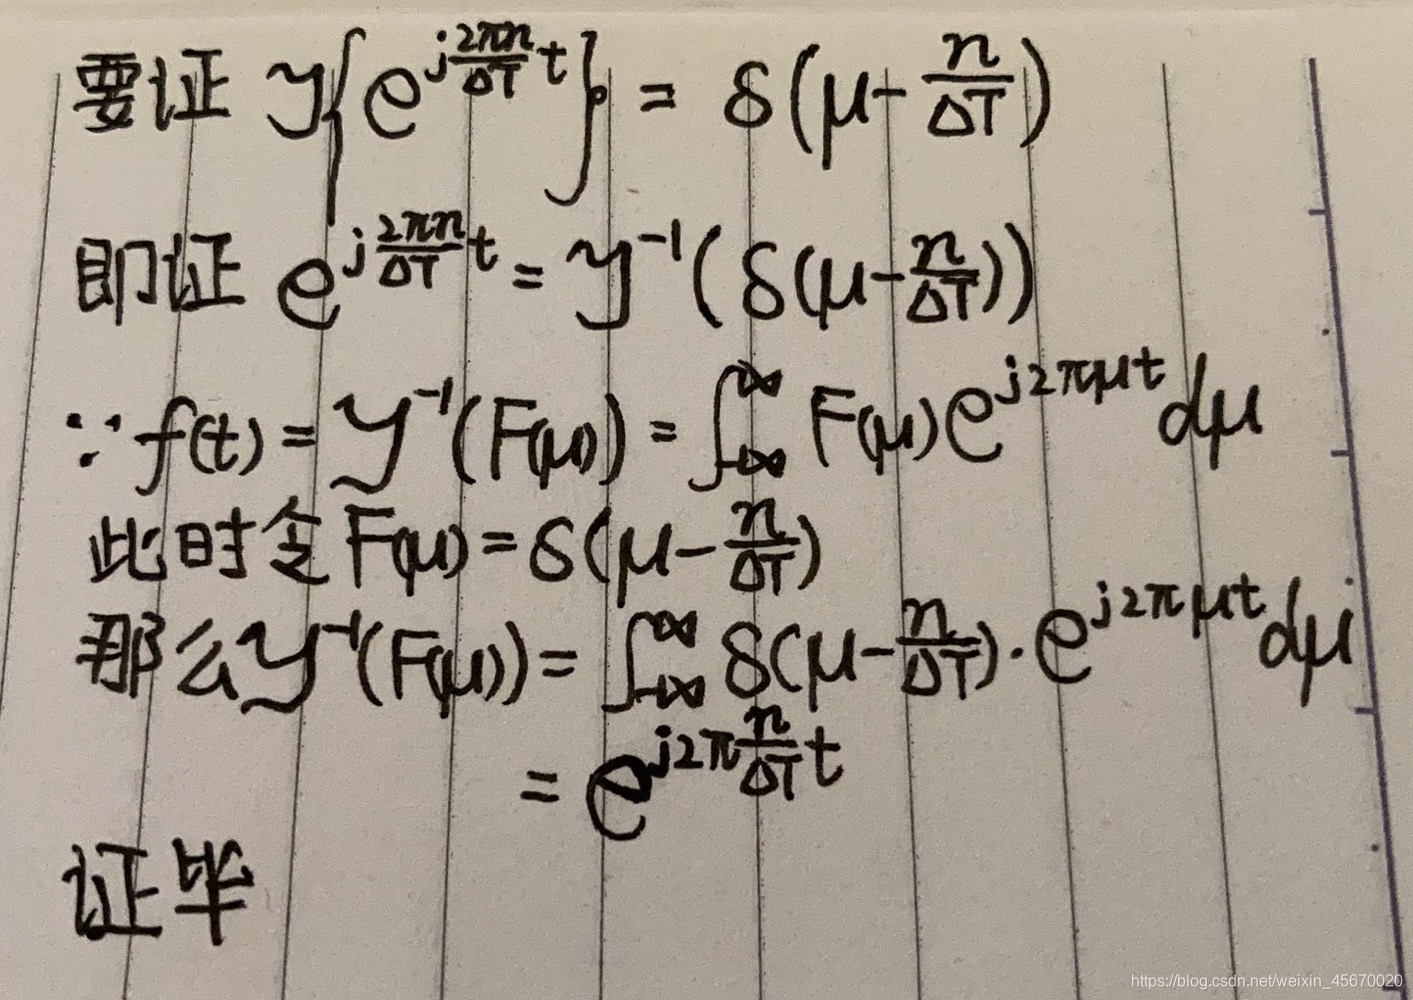 要证 𝓎{e^{j\frac{2πn}{ΔT}t}} = δ(μ-\frac{n}{ΔT})
即证 e^{j\frac{2πn}{ΔT}t} = 𝓎^{-1}(δ(μ-\frac{n}{ΔT}))
∵ f(t) = 𝓎^{-1}(F(μ)) = ∫_{-∞}^{∞} F(μ)e^{j2πμt}dμ
此时令 F(μ) = δ(μ-\frac{n}{ΔT})
那么 𝓎^{-1}(F(μ)) = ∫_{-∞}^{∞} δ(μ-\frac{n}{ΔT})·e^{j2πμt}dμ
= e^{j2π\frac{n}{ΔT}t}
证毕
https://blog.csdn.net/weixin_45670020